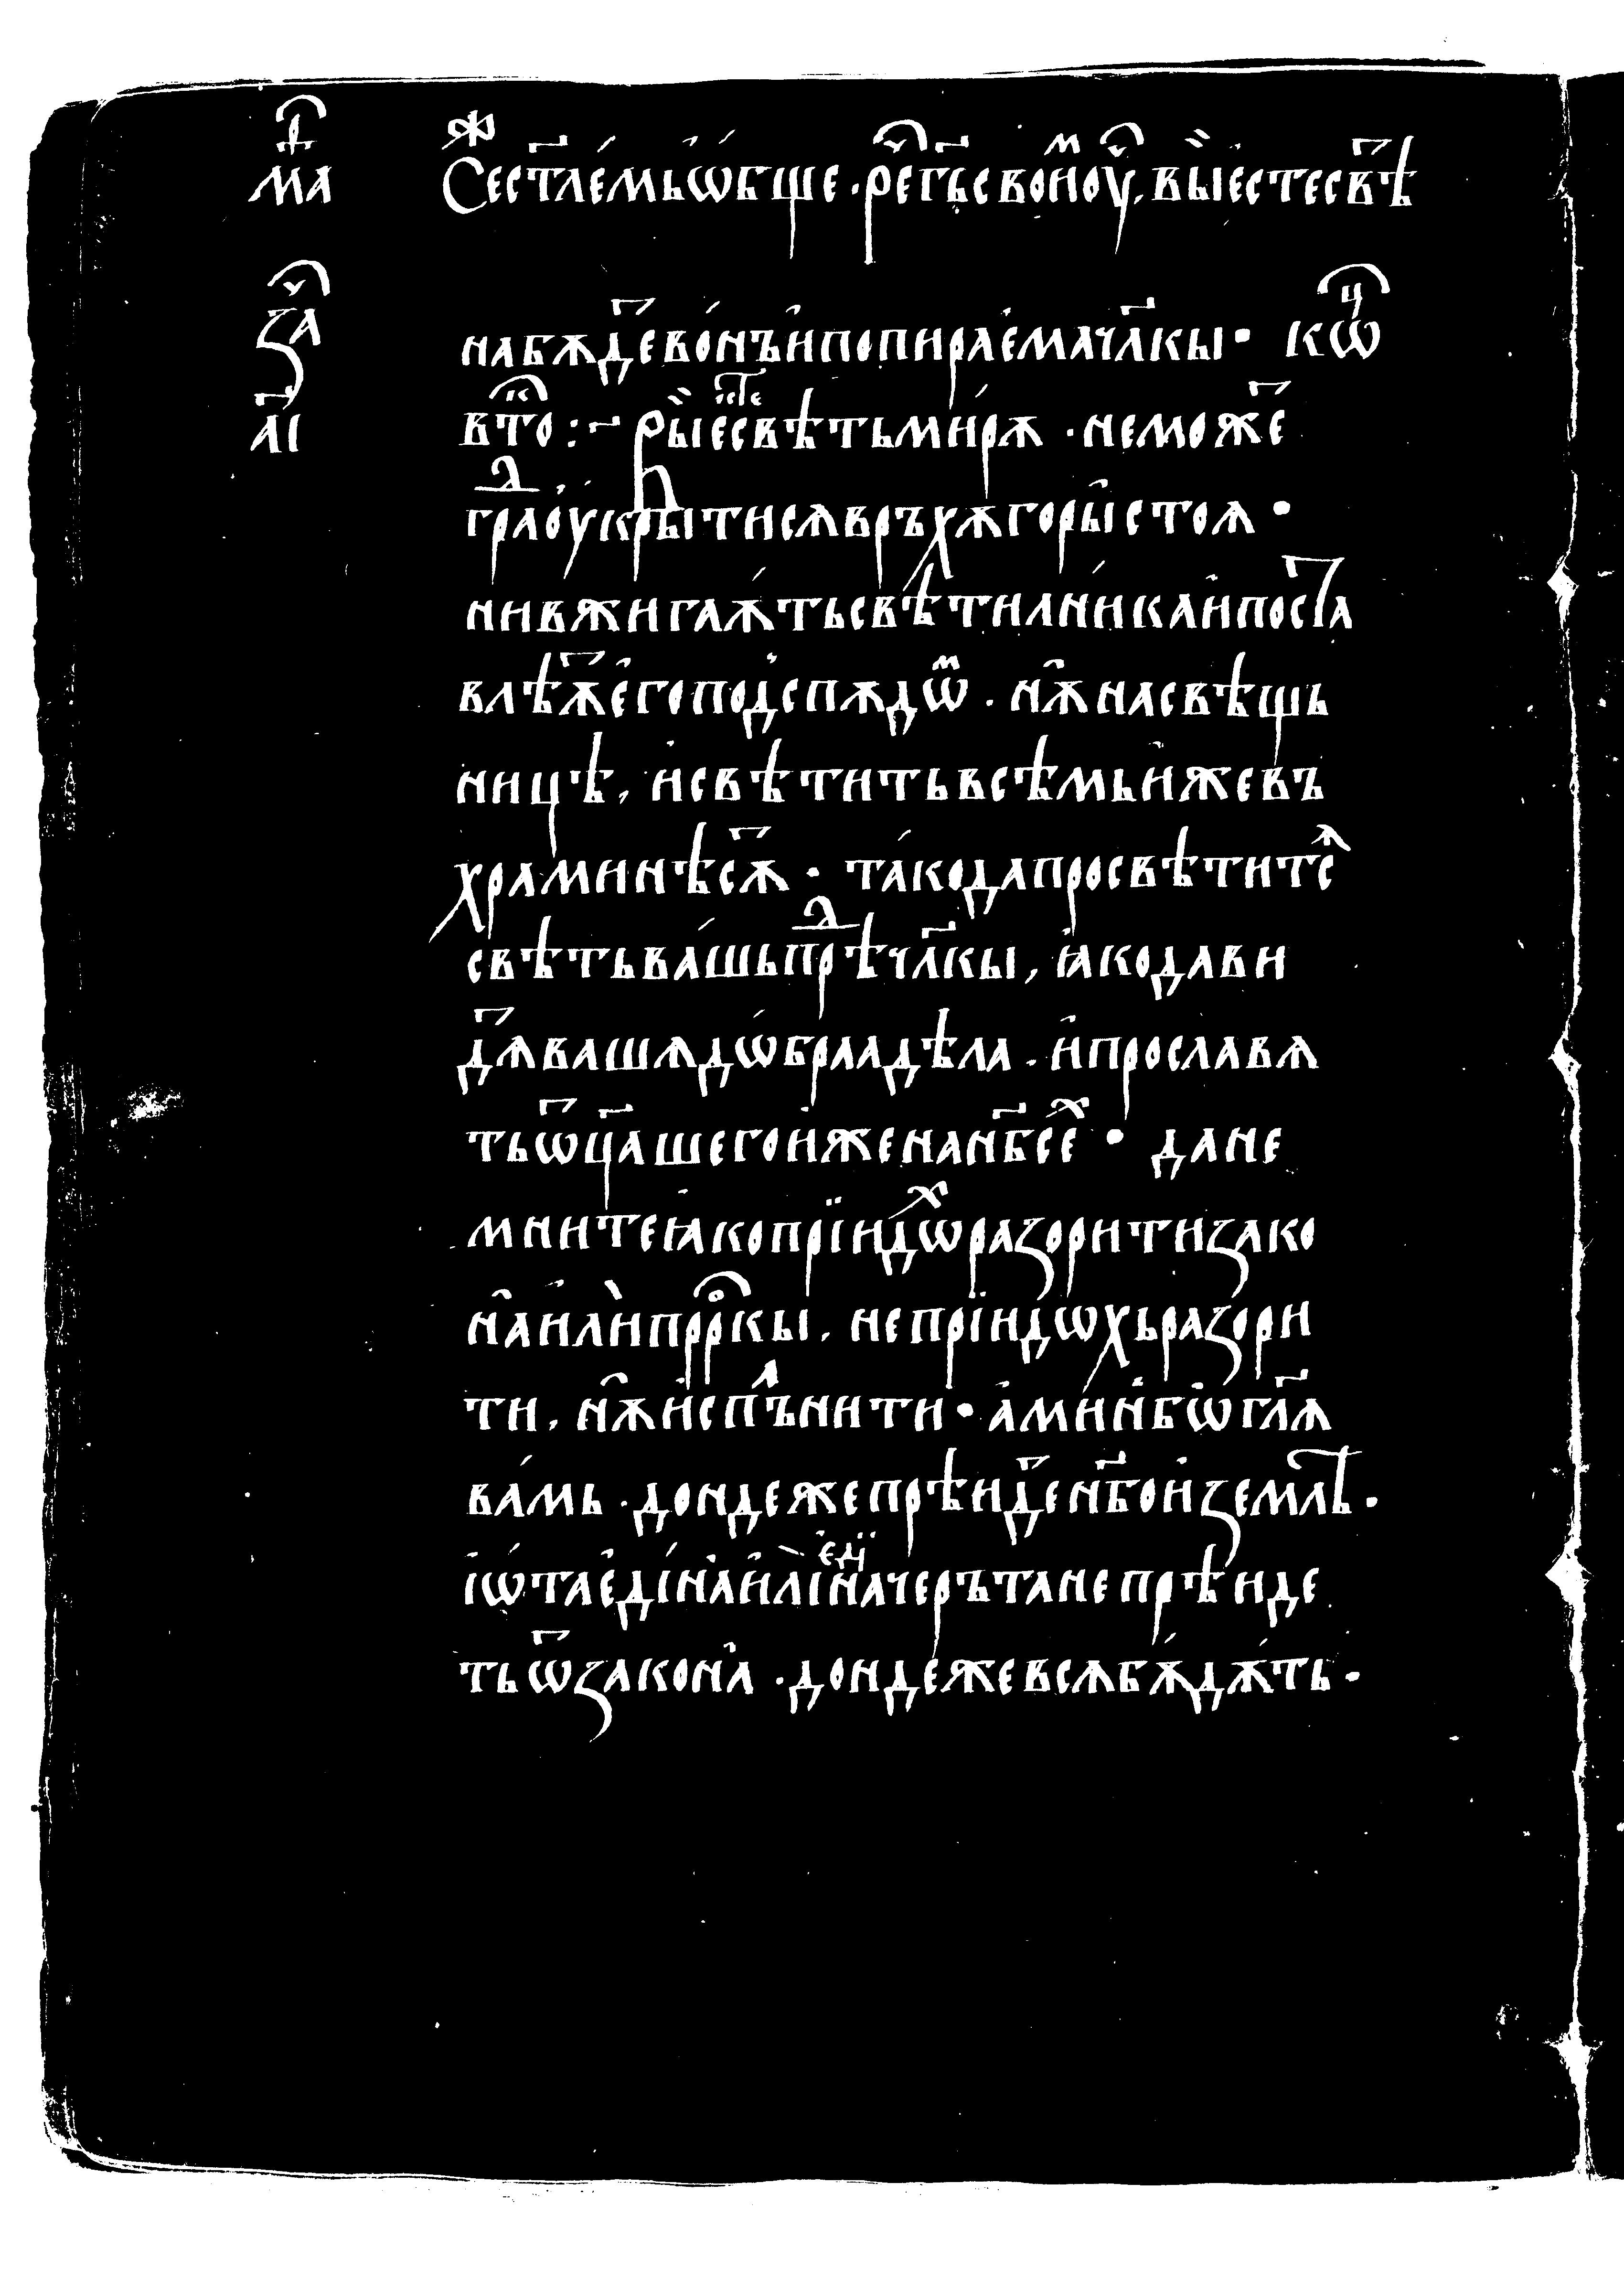 мⷶ҇а Сест҃лемьѡбще · ре҇г҃ьсвоⷨиоу҇ . выестесвѣ҃
за҇ набѫд҃евонъипопираемачл҃кы · кѡⷱ҇
аі҃ вⷦ҇то :~ рыеⷭ҇свѣтьмирѫ · неможе҃
граⷣоукрытисѧврьхѫгорыстоѧ ·
нивжигаѫтьсвѣтилникаипост҃а
влѣѫ҃егоподспѫдѡⷨ . нѫ̑насвѣщь
ницѣ , исвѣтитьвсѣмьижевъ
храминѣсѫ҃ · такодапросвѣтитсѧ
свѣтьвашьпрⷣѣчл҃кы , ꙗкодави
дѧ҃вашѧдѡбраадѣла . ипрославѧ
тьѿц҃ашегоиженанб҃сеⷯ · дане
мнитеꙗкопрїидѡⷯразоритизако
наилипррⷪ҇кы , непрїидѡхьразори
ти , нѫ̑испⷧънити · аминбѡгл҃ѧ
вамь · дондежепрѣид҃енб҃оиземлѣ ·
іѡтаедінаиліедїначерътанепрѣиде
тьѿзакона · дондежевсѧбѫдѫть ·